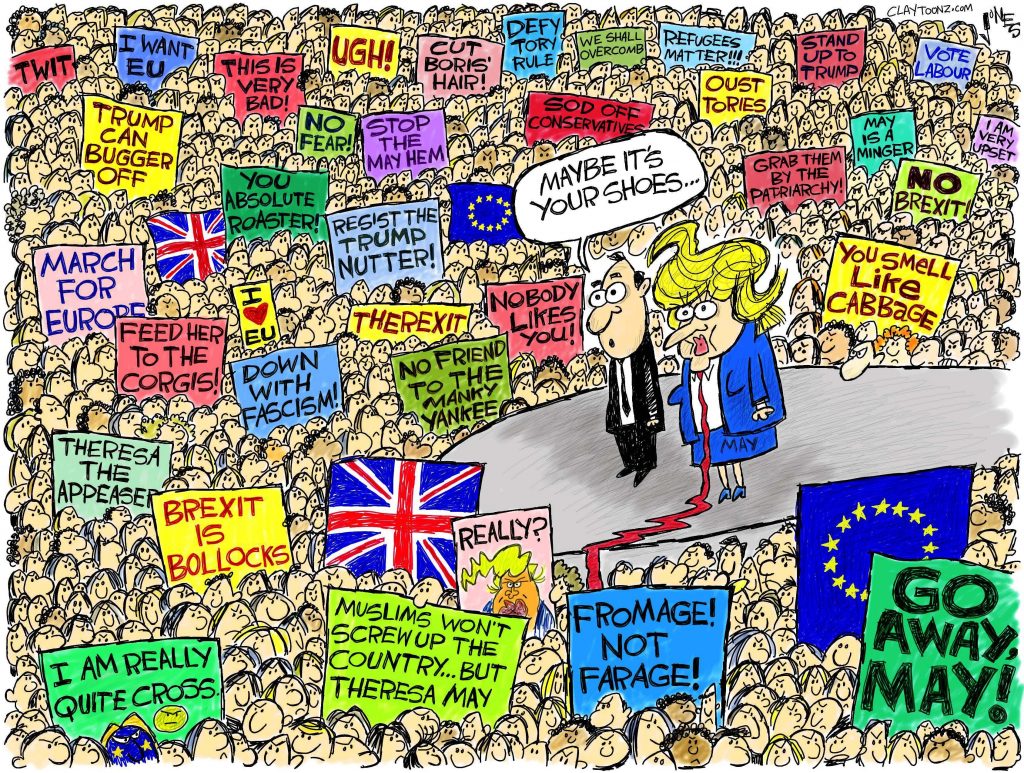 CLAYTOONZ.COM
JONES
TWIT
I WANT
EU
THIS IS
VERY
BAD!
UGH!
CUT
BORIS'
HAIR!
DEFY
TORY
RULE
WE SHALL
OVERCOMB
REFUGEES
MATTER!!!
OUST
TORIES
STAND
UP TO
TRUMP
VOTE
LABOUR
TRUMP
CAN
BUGGER
OFF
NO
FEAR!
STOP
THE
MAY HEM
SOD OFF
CONSERVATIVES
MAY
IS A
MINGER
I AM
VERY
UPSET
MAYBE IT'S
YOUR SHOES...
GRAB THEM
BY THE
PATRIARCHY!
NO
BREXIT!
YOU
ABSOLUTE
ROASTER!
RESIST THE
TRUMP
NUTTER!
MARCH
FOR
EUROPE
I
EU
THEREXIT
NOBODY
LIKES
YOU!
YOU SMELL
LIKE
CABBAGE
FEED HER
TO THE
CORGIS!
DOWN
WITH
FASCISM!
NO FRIEND
TO THE
MANKY
YANKEE
MAY
THERESA
THE
APPEASER
BREXIT
IS
BOLLOCKS
REALLY?
GO
AWAY,
MAY!
I AM REALLY
QUITE CROSS.
MUSLIMS WON'T
SCREW UP THE
COUNTRY... BUT
THERESA MAY
FROMAGE!
NOT
FARAGE!